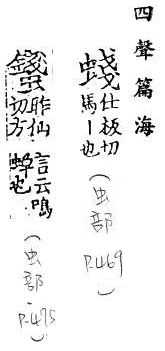 四聲篇海
䗃仕板切馬丨也(虫部 P.469)
昨仙切方言云鳴蟬也(虫部 P.475)